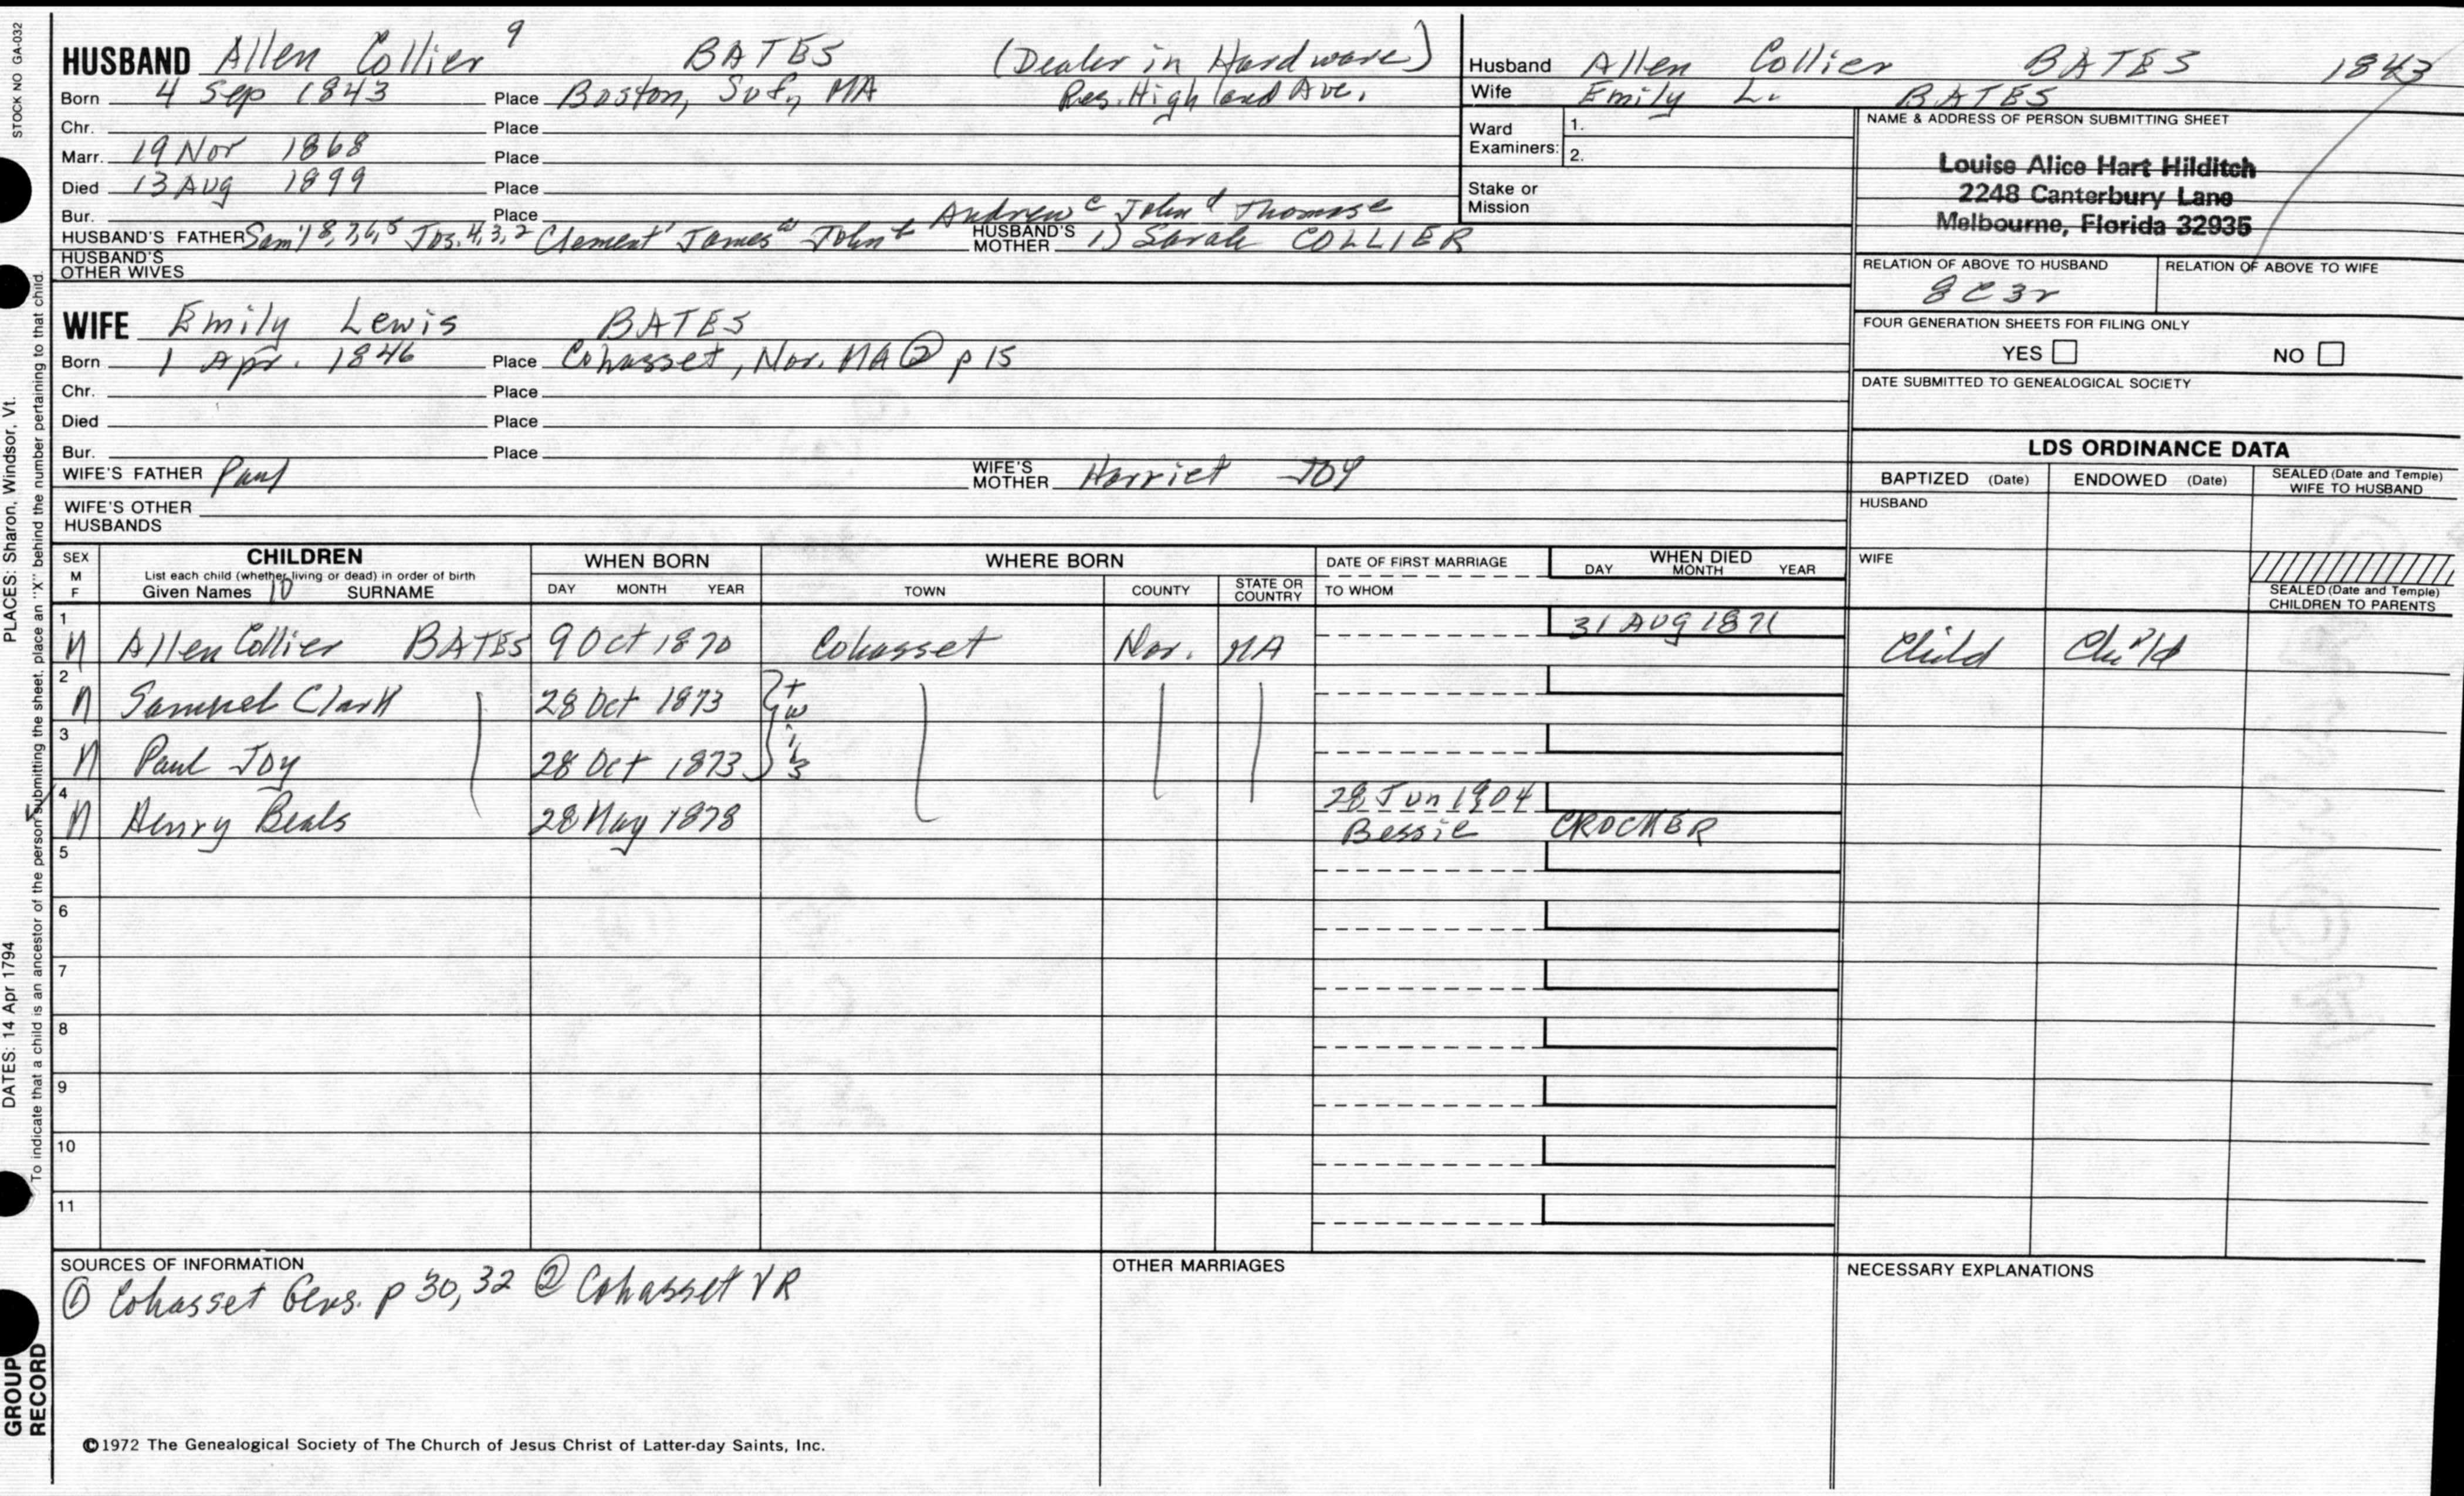 STOCK NO GA-032
HUSBAND Allen Collier 9 BATES (Dealer in Hardware)
Born 4 Sep 1843 Place Boston, Suf, MA Res. Highland Ave.
Chr. Place
Marr. 19 Nov 1868 Place
Died 13 Aug 1899 Place
Bur. Place Andrew c John d Thomas e
HUSBAND'S FATHER Sam'l 8,7,6,5 Jos. 4,3,2 Clement 1 James a John b HUSBAND'S MOTHER 1) Sarah COLLIER
HUSBAND'S OTHER WIVES
Husband Allen Collier BATES 1843
Wife Emily L. BATES
Ward Examiners: 1.
2.
Stake or Mission
NAME & ADDRESS OF PERSON SUBMITTING SHEET
Louise Alice Hart Hilditch
2248 Canterbury Lane
Melbourne, Florida 32935
RELATION OF ABOVE TO HUSBAND RELATION OF ABOVE TO WIFE
8C3r
FOUR GENERATION SHEETS FOR FILING ONLY
YES NO
DATE SUBMITTED TO GENEALOGICAL SOCIETY
WIFE Emily Lewis BATES
Born 1 Apr. 1846 Place Cohasset, Nor. MA ② p 15
Chr. Place
Died Place
Bur. Place
WIFE'S FATHER Paul WIFE'S MOTHER Harriet JOY
WIFE'S OTHER HUSBANDS
LDS ORDINANCE DATA
BAPTIZED (Date) ENDOWED (Date) SEALED (Date and Temple) WIFE TO HUSBAND
HUSBAND
WIFE
SEALED (Date and Temple) CHILDREN TO PARENTS
SEX M F CHILDREN WHEN BORN WHERE BORN DATE OF FIRST MARRIAGE WHEN DIED
List each child (whether living or dead) in order of birth
Given Names 10 SURNAME DAY MONTH YEAR TOWN COUNTY STATE OR COUNTRY TO WHOM DAY MONTH YEAR
1 M Allen Collier BATES 9 Oct 1870 Cohasset Nor. MA 31 AUG 1871 Child Child
2 M Samuel Clark 28 Oct 1873 twins
3 M Paul Joy 28 Oct 1873
4 M Henry Beals 28 May 1878 28 Jun 1904
Bessie CROCKER
5
6
7
8
9
10
11
SOURCES OF INFORMATION OTHER MARRIAGES NECESSARY EXPLANATIONS
① Cohasset Gens. p 30, 32 ② Cohasset VR
©1972 The Genealogical Society of The Church of Jesus Christ of Latter-day Saints, Inc.
PLACES: Sharon, Windsor, Vt.
DATES: 14 Apr 1794
To indicate that a child is an ancestor of the person submitting the sheet, place an "X" behind the number pertaining to that child.
GROUP RECORD